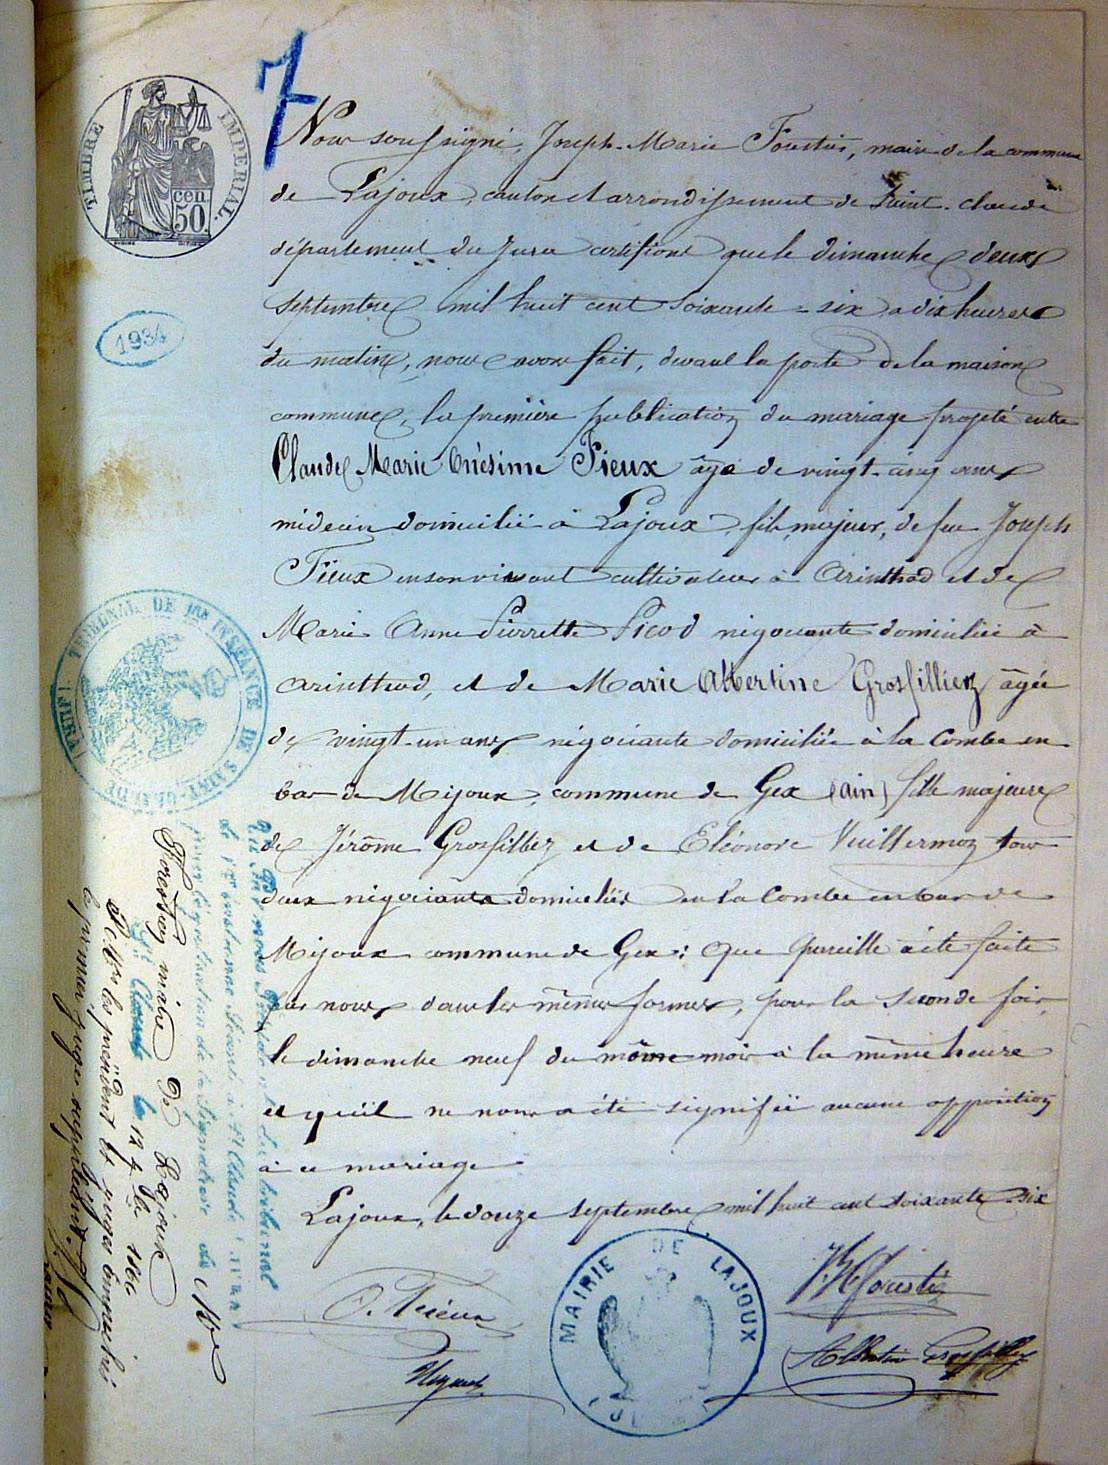 7
TIMBRE IMPERIAL
cen
50.
1934
Nous soussigné, Joseph-Marie, maire de la commune
de Lajoux, canton et arrondissement de Saint-Claude
département du Jura certifions que le dimanche deux
septembre mil huit cent soixante-six à dix heures
du matin, nous avons fait, devant la porte de la maison
commune, la première publication du mariage projeté entre
Claude Marie Onésime Fieux âgé de vingt-cinq ans
médecin domicilié à Lajoux, fils majeur, de feu Joseph
Fieux en son vivant cultivateur à Arinthod et de
Marie Anne Pierrette Picod négociante domiciliée à
arinthod, et de Marie Albertine Grosfilliez âgée
de vingt-un ans négociante domiciliée à la Combe en
bas de Mijoux, commune de Gex (ain) fille majeure
de Jérôme Grosfilley et de Eléonore Vuillermoz tous
deux négociants domiciliés en la Combe en bas de
Mijoux commune de Gex; que pareille a été faite
par nous dans les mêmes formes, pour la seconde fois,
le dimanche neuf du même mois à la même heure
et qu'il ne nous a été signifié aucune opposition
à ce mariage.
Lajoux, le douze septembre mil huit cent soixante-six
MAIRIE DE LAJOUX
TRIBUNAL DE 1re INSTANCE DE SAINT-CLAUDE
(JURA)
maire de Lajoux
St Claude le 12 7bre 1866